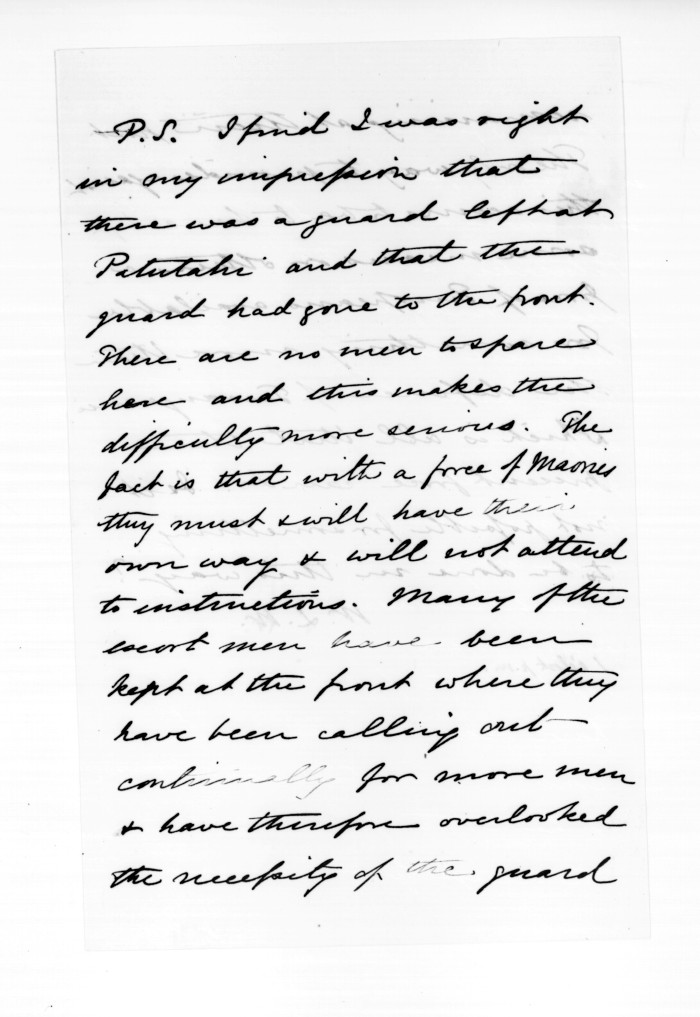 P.S. I find I was right
in my impression that
there was a guard left at
Patutahi and that the
guard had gone to the front.
There are no men to spare
here and this makes the
difficulty more serious. The
fact is that with a force of Maories
they must & will have their
own way & will not attend
to instructions. Many of the
escort men have been
kept at the front where they
have been calling out
continually for more men
& have therefore overlooked
the necessity of the guard